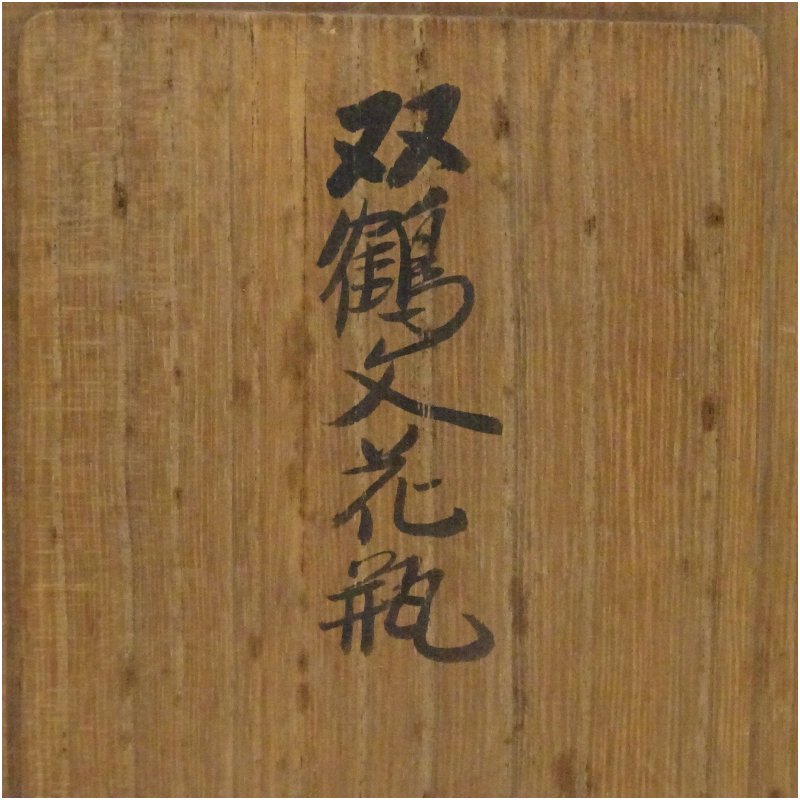 双鶴文花瓶